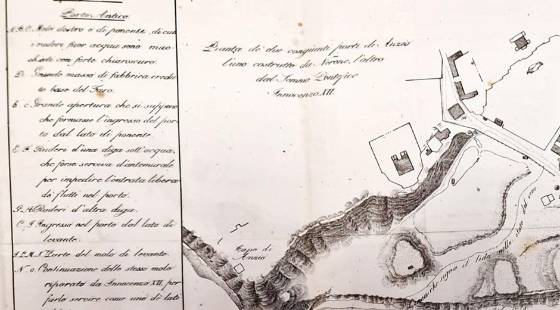 Porto Antico
A.B.C. Molo destro o di ponente, di cui
i ruderi fuor acqua sono mar-
cati con forte chiaroscuro.
D. Grande massa di fabbrica credu-
ta base del Faro.
E. e. Grande apertura che si suppone
che formasse l'ingresso del por-
to dal lato di ponente
Ruderi d'una diga sott'acqua,
che forse serviva d'antemurale
per impedire l'entrata libera
de' flutti nel porto.
G. H. Ruderi d'altra diga.
C. I. Ingresso nel porto dal lato di
levante.
I. L. M. N. Parte del molo di levante.
N. O. Continuazione dello stesso molo
riparata da Innocenzo XII, per
farlo servire come uno di lati
Pianta de' due congiunti porti di Anzio
l'uno costrutto da Nerone, l'altro
dal Sommo Pontefice
Innocenzo XII.
Capo di
Anzio
che segna il lido